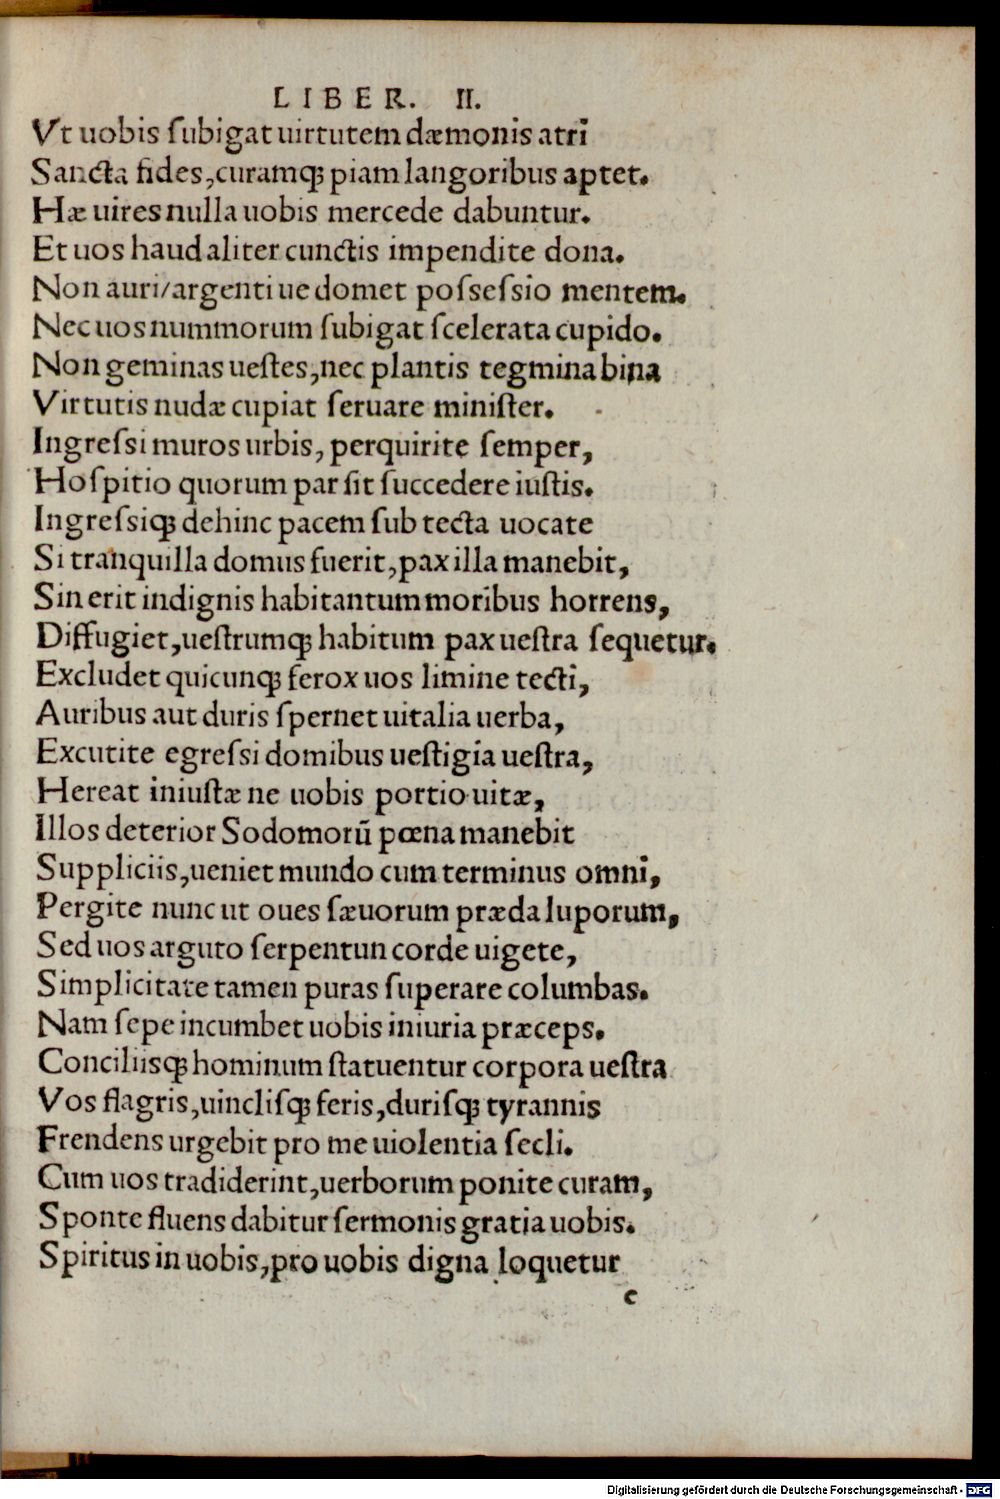 LIBER. II.
Vt uobis ſubigat uirtutem dæmonis atri
Sancta fides, curamqꝫ piam langoribus aptet.
Hæ uires nulla uobis mercede dabuntur.
Et uos haud aliter cunctis impendite dona.
Non auri/argenti ue domet poſseſsio mentem.
Nec uos nummorum ſubigat ſcelerata cupido.
Non geminas ueſtes, nec plantis tegmina bina
Virtutis nudæ cupiat ſeruare miniſter.
Ingreſsi muros urbis, perquirite ſemper,
Hoſpitio quorum par ſit ſuccedere iuſtis.
Ingreſsiqꝫ dehinc pacem ſub tecta uocate
Si tranquilla domus fuerit, pax illa manebit,
Sin erit indignis habitantum moribus horrens,
Diffugiet, ueſtrumqꝫ habitum pax ueſtra ſequetur.
Excludet quicunqꝫ ferox uos limine tecti,
Auribus aut duris ſpernet uitalia uerba,
Excutite egreſsi domibus ueſtigia ueſtra,
Hereat iniuſtæ ne uobis portio uitæ,
Illos deterior Sodomorū pœna manebit
Suppliciis, ueniet mundo cum terminus omni,
Pergite nunc ut oues ſæuorum præda luporum,
Sed uos arguto ſerpentun corde uigete,
Simplicitate tamen puras ſuperare columbas.
Nam ſepe incumbet uobis iniuria præceps.
Conciliisqꝫ hominum ſtatuentur corpora ueſtra
Vos flagris, uincliſqꝫ feris, duriſqꝫ tyrannis
Frendens urgebit pro me uiolentia ſecli.
Cum uos tradiderint, uerborum ponite curam,
Sponte fluens dabitur ſermonis gratia uobis.
Spiritus in uobis, pro uobis digna loquetur
c
Digitalisierung gefördert durch die Deutsche Forschungsgemeinschaft - DFG